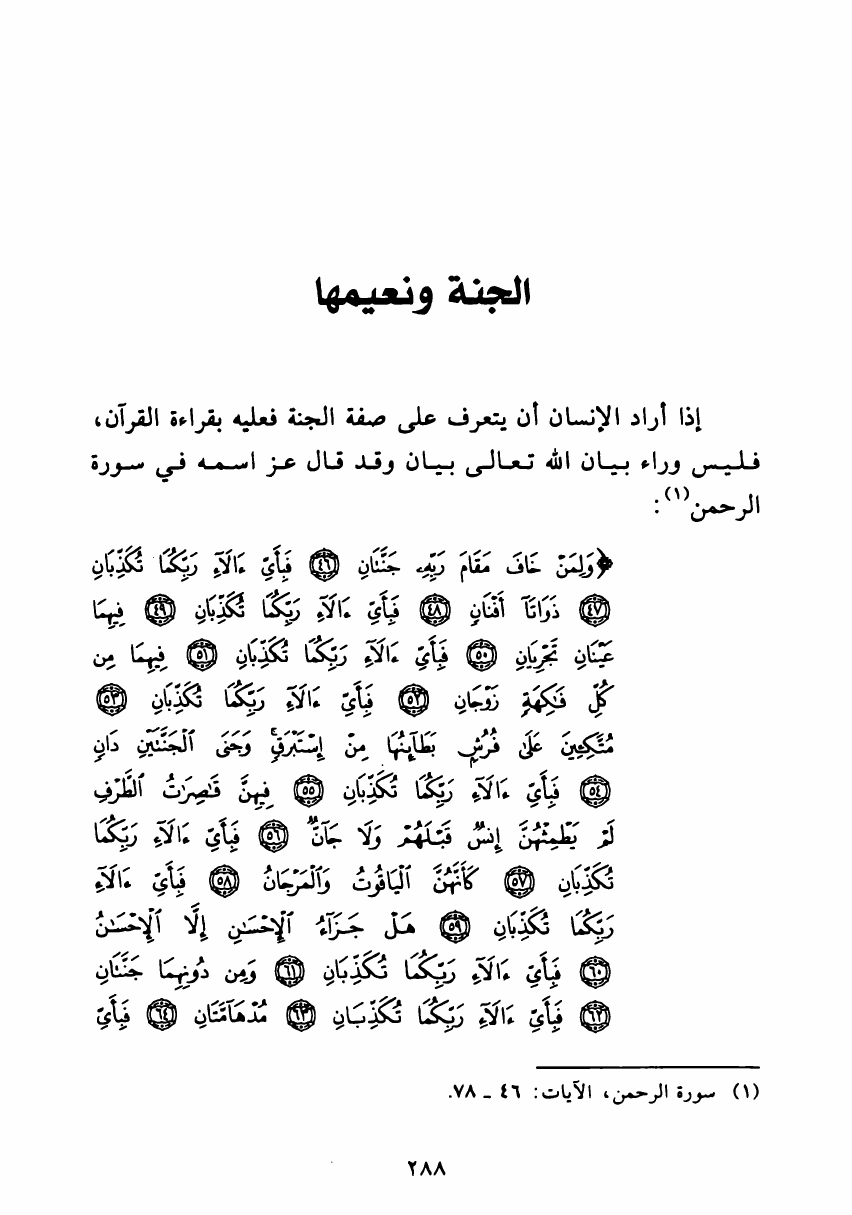 الجنة ونعيمها
إذا أراد الإنسان أن يتعرف على صفة الجنة فعليه بقراءة القرآن،
فليس وراء بيان الله تعالى بيان وقد قال عز اسمه في سورة
الرحمن(١):
﴿وَلِمَنْ خَافَ مَقَامَ رَبِّهِۦ جَنَّتَانِ ٤٦ فَبِأَيِّ ءَالَآءِ رَبِّكُمَا تُكَذِّبَانِ
٤٧ ذَوَاتَآ أَفْنَانٍ ٤٨ فَبِأَيِّ ءَالَآءِ رَبِّكُمَا تُكَذِّبَانِ ٤٩ فِيهِمَا
عَيْنَانِ تَجْرِيَانِ ٥٠ فَبِأَيِّ ءَالَآءِ رَبِّكُمَا تُكَذِّبَانِ ٥١ فِيهِمَا مِن
كُلِّ فَٰكِهَةٍ زَوْجَانِ ٥٢ فَبِأَيِّ ءَالَآءِ رَبِّكُمَا تُكَذِّبَانِ ٥٣
مُتَّكِـِٔينَ عَلَىٰ فُرُشٍۭ بَطَآئِنُهَا مِنْ إِسْتَبْرَقٍۚ وَجَنَى ٱلْجَنَّتَيْنِ دَانٍ
٥٤ فَبِأَيِّ ءَالَآءِ رَبِّكُمَا تُكَذِّبَانِ ٥٥ فِيهِنَّ قَٰصِرَٰتُ ٱلطَّرْفِ
لَمْ يَطْمِثْهُنَّ إِنسٌ قَبْلَهُمْ وَلَا جَآنٌّ ٥٦ فَبِأَيِّ ءَالَآءِ رَبِّكُمَا
تُكَذِّبَانِ ٥٧ كَأَنَّهُنَّ ٱلْيَاقُوتُ وَٱلْمَرْجَانُ ٥٨ فَبِأَيِّ ءَالَآءِ
رَبِّكُمَا تُكَذِّبَانِ ٥٩ هَلْ جَزَآءُ ٱلْإِحْسَٰنِ إِلَّا ٱلْإِحْسَٰنُ
٦٠ فَبِأَيِّ ءَالَآءِ رَبِّكُمَا تُكَذِّبَانِ ٦١ وَمِن دُونِهِمَا جَنَّتَانِ
٦٢ فَبِأَيِّ ءَالَآءِ رَبِّكُمَا تُكَذِّبَانِ ٦٣ مُدْهَآمَّتَانِ ٦٤ فَبِأَيِّ
(١) سورة الرحمن، الآيات: ٤٦ ـ ٧٨.
٢٨٨